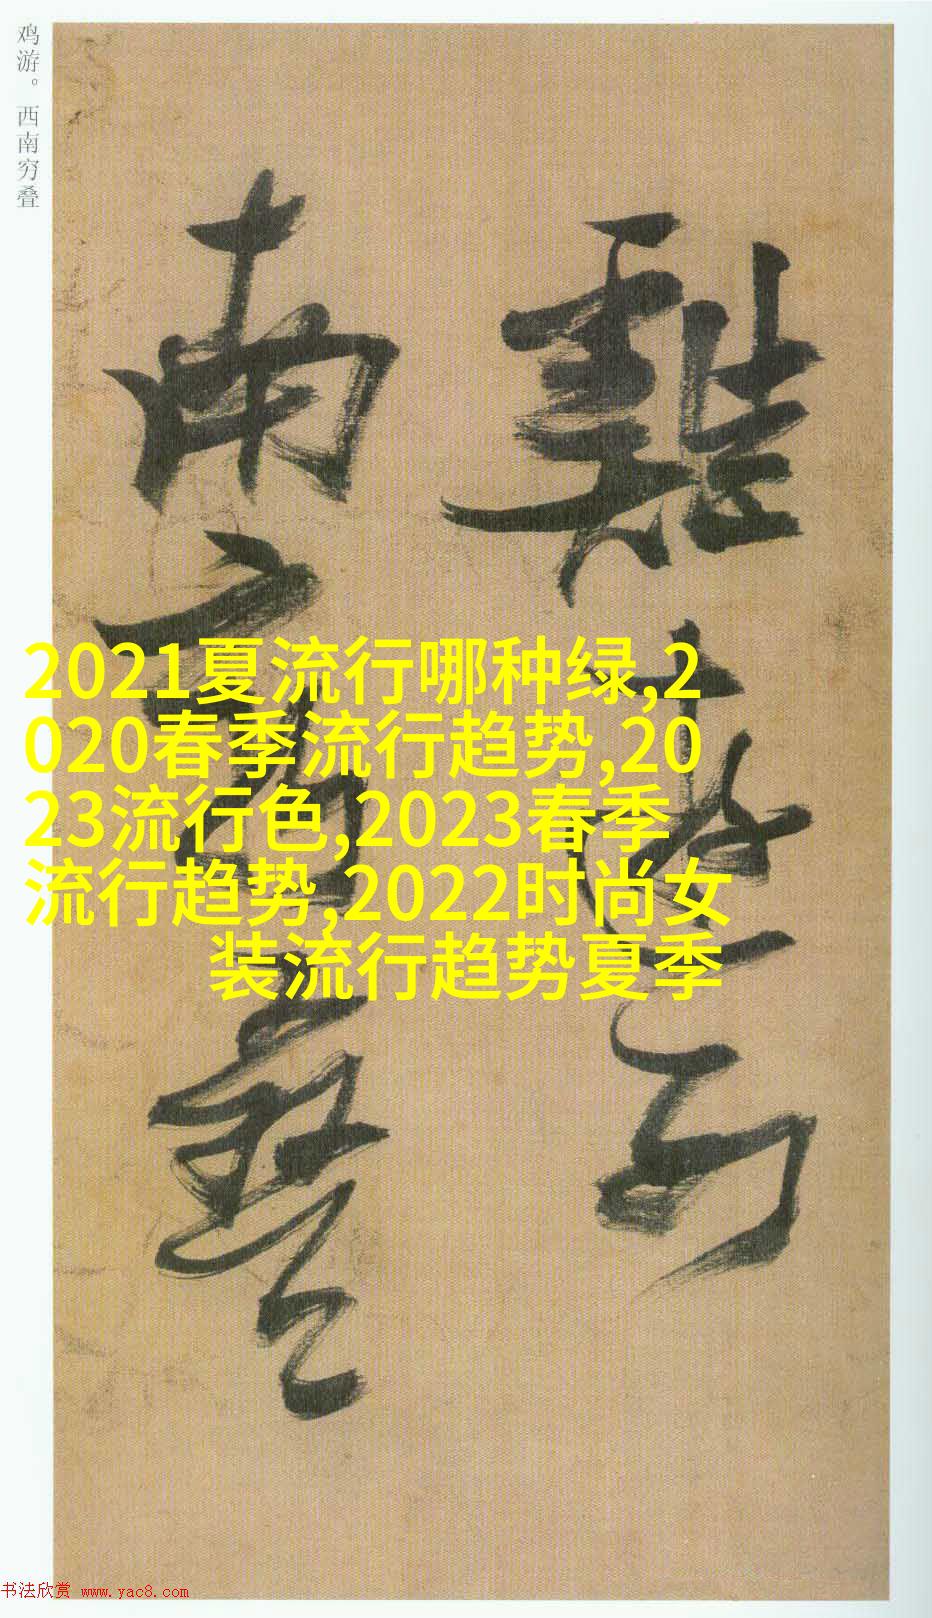 鸡游。西南穷叠
雞遊西
南窮疊
2021夏流行哪种绿,2
020春季流行趋势,20
23流行色,2023春季
流行趋势,2022时尚女
装流行趋势夏季
书法欣赏 www.yac8.com